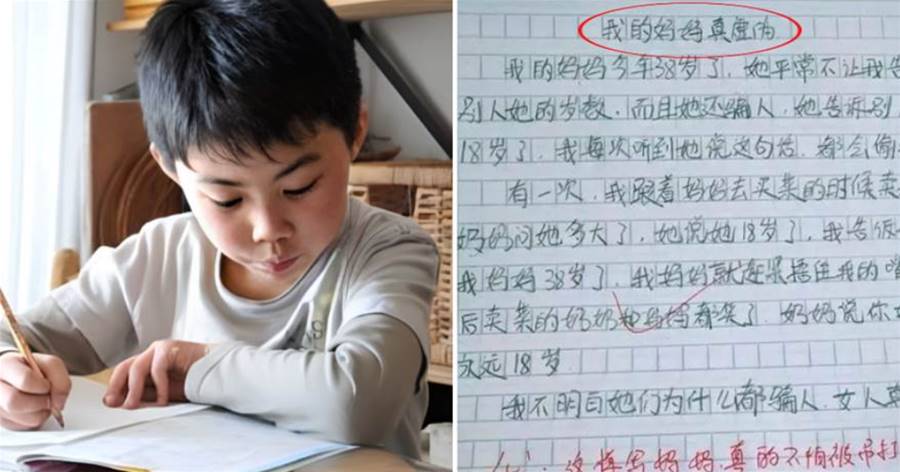 我的妈妈真虚伪
我的妈妈今年38岁了，她平常不让我告
别人她的岁数，而且她还骗人，她告诉别
18岁了，我每次听到她说这句话，都会偷
有一次，我跟着妈妈去买菜的时候卖
奶奶问她多大了，她说她18岁了，我告
我妈妈38岁了，我妈妈就赶紧捂住我的嘴
后卖菜的奶奶和妈妈都笑了，奶奶说你
永远18岁
我不明白她们为什么都骗人，女人真
这样写妈妈真的不怕被吊打